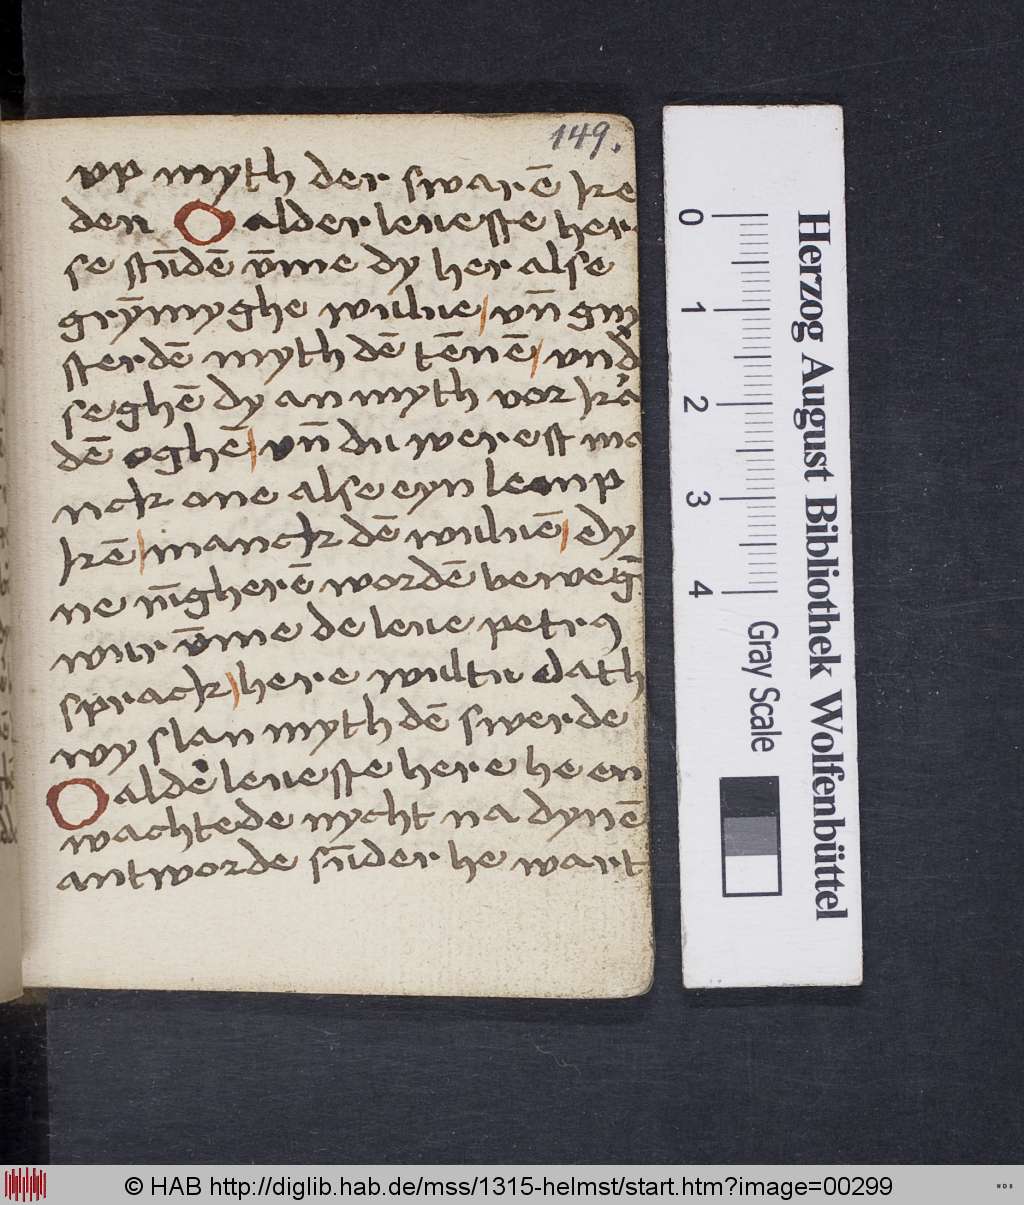 149.
vp myth der swarē ke
den O alder leueste her
se stūdē v̄me dy her alse
grȳmyghe wulue / vn̄ gny
sterdē myth dē tēnē / vnd
seghē dy an myth vor kra
dē oghē / vn̄ du werest ma
nck one alse eyn leonp
kē / manck dē wuluē / dy
ne nīgherē wordē beweḡ
wur v̄me de leue petrꝯ
sprack / here wultu dath
wy slan myth dē swerde
O aldē leueste here he en
wachtede nycht na dynē
antworde sūder he wart
0 1 2 3 4
Gray Scale
Herzog August Bibliothek Wolfenbüttel
© HAB http://diglib.hab.de/mss/1315-helmst/start.htm?image=00299